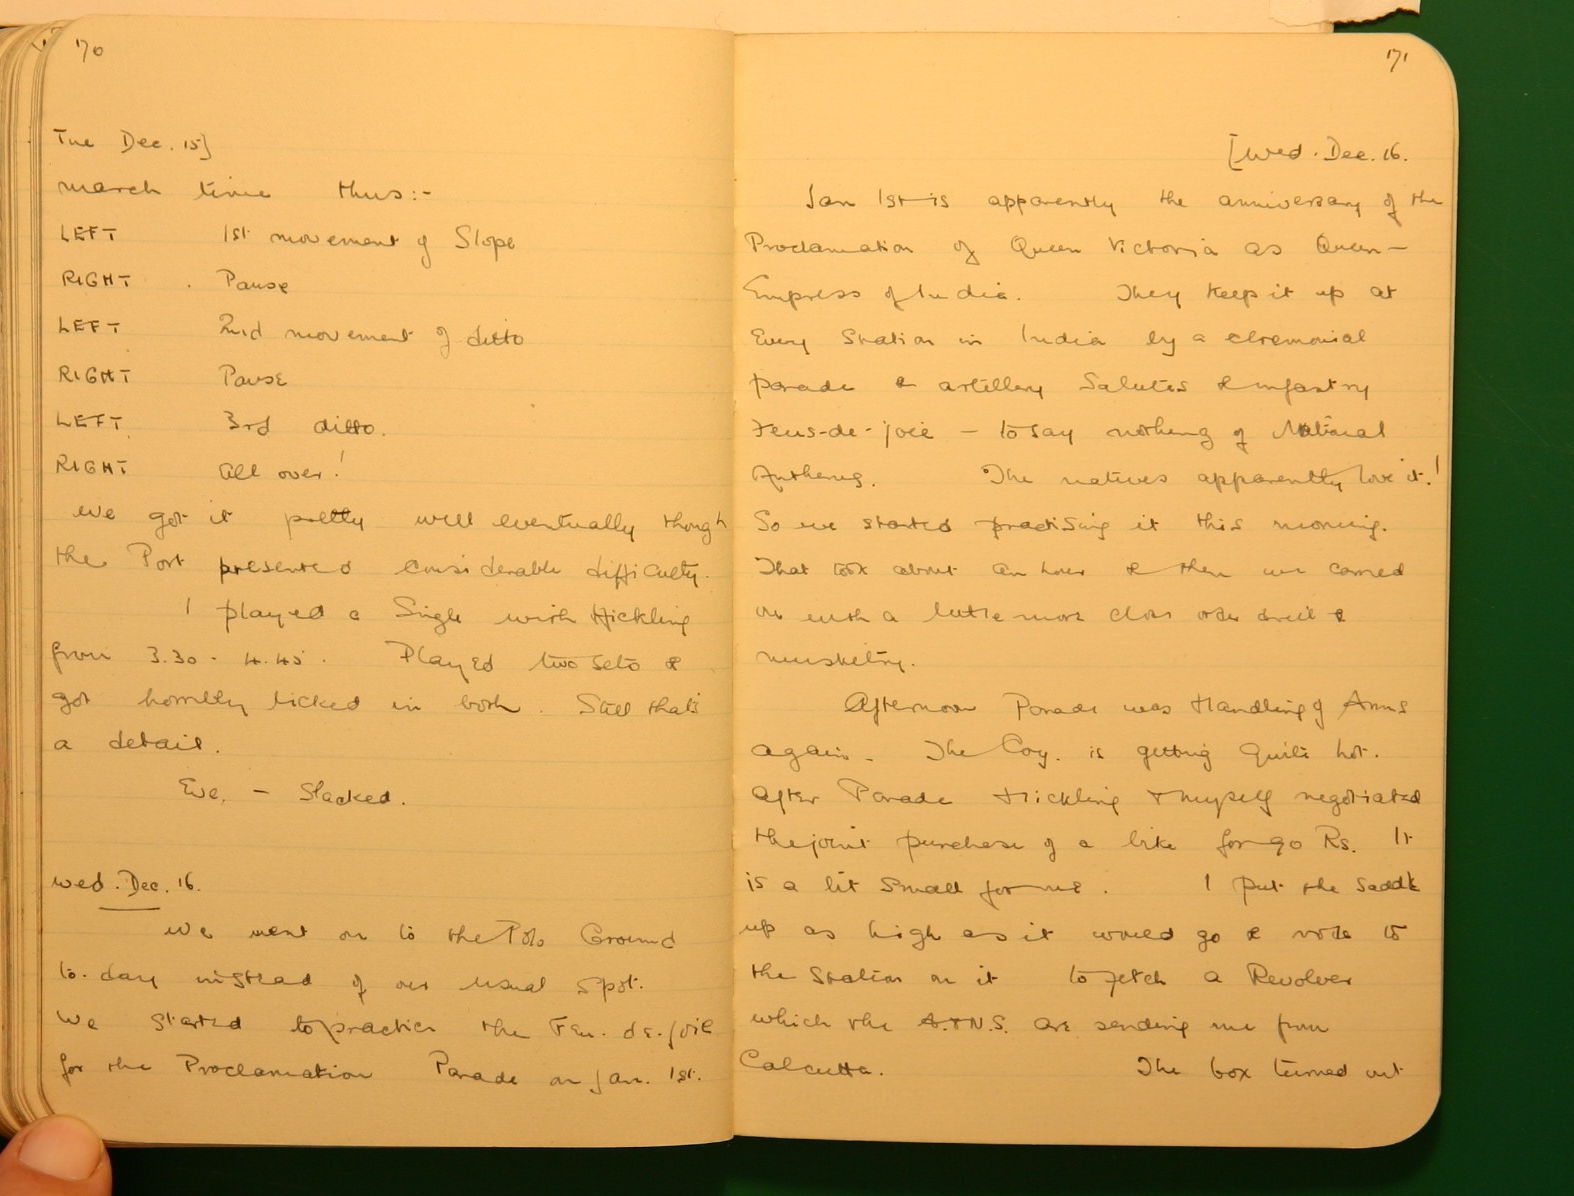 170
Tue Dec. 15]
march time thus:-
LEFT 1st movement of Slope
RIGHT . Pause
LEFT 2nd movement of ditto
RIGHT Pause
LEFT 3rd ditto.
RIGHT All over!
We got it pretty well eventually though
the Port presented considerable difficulty.
I played a Single with Hickling
from 3.30 - 4.45. Played two sets &
got horribly licked in both. Still that's
a detail.
Eve. - Slacked.
Wed. Dec. 16.
We went on to the Polo Ground
to-day instead of our usual spot.
We started to practice the Feu-de-joie
for the Proclamation Parade on Jan. 1st.
171
[Wed. Dec. 16.
Jan 1st is apparently the anniversary of the
Proclamation of Queen Victoria as Queen-
Empress of India. They keep it up at
Every Station in India by a ceremonial
parade & artillery Salutes & infantry
Feus-de-joie - to say nothing of National
Anthems. The natives apparently love it!
So we started practising it this morning.
That took about an hour & then we carried
on with a little more close order drill &
musketry.
Afternoon Parade was Handling of Arms
again. The Coy. is getting quite hot.
After Parade Hickling & myself negotiated
the joint purchase of a bike for 90 Rs. It
is a bit small for me. I put the saddle
up as high as it would go & rode to
the Station on it to fetch a Revolver
which the A.&N.S. are sending me from
Calcutta. The box turned out